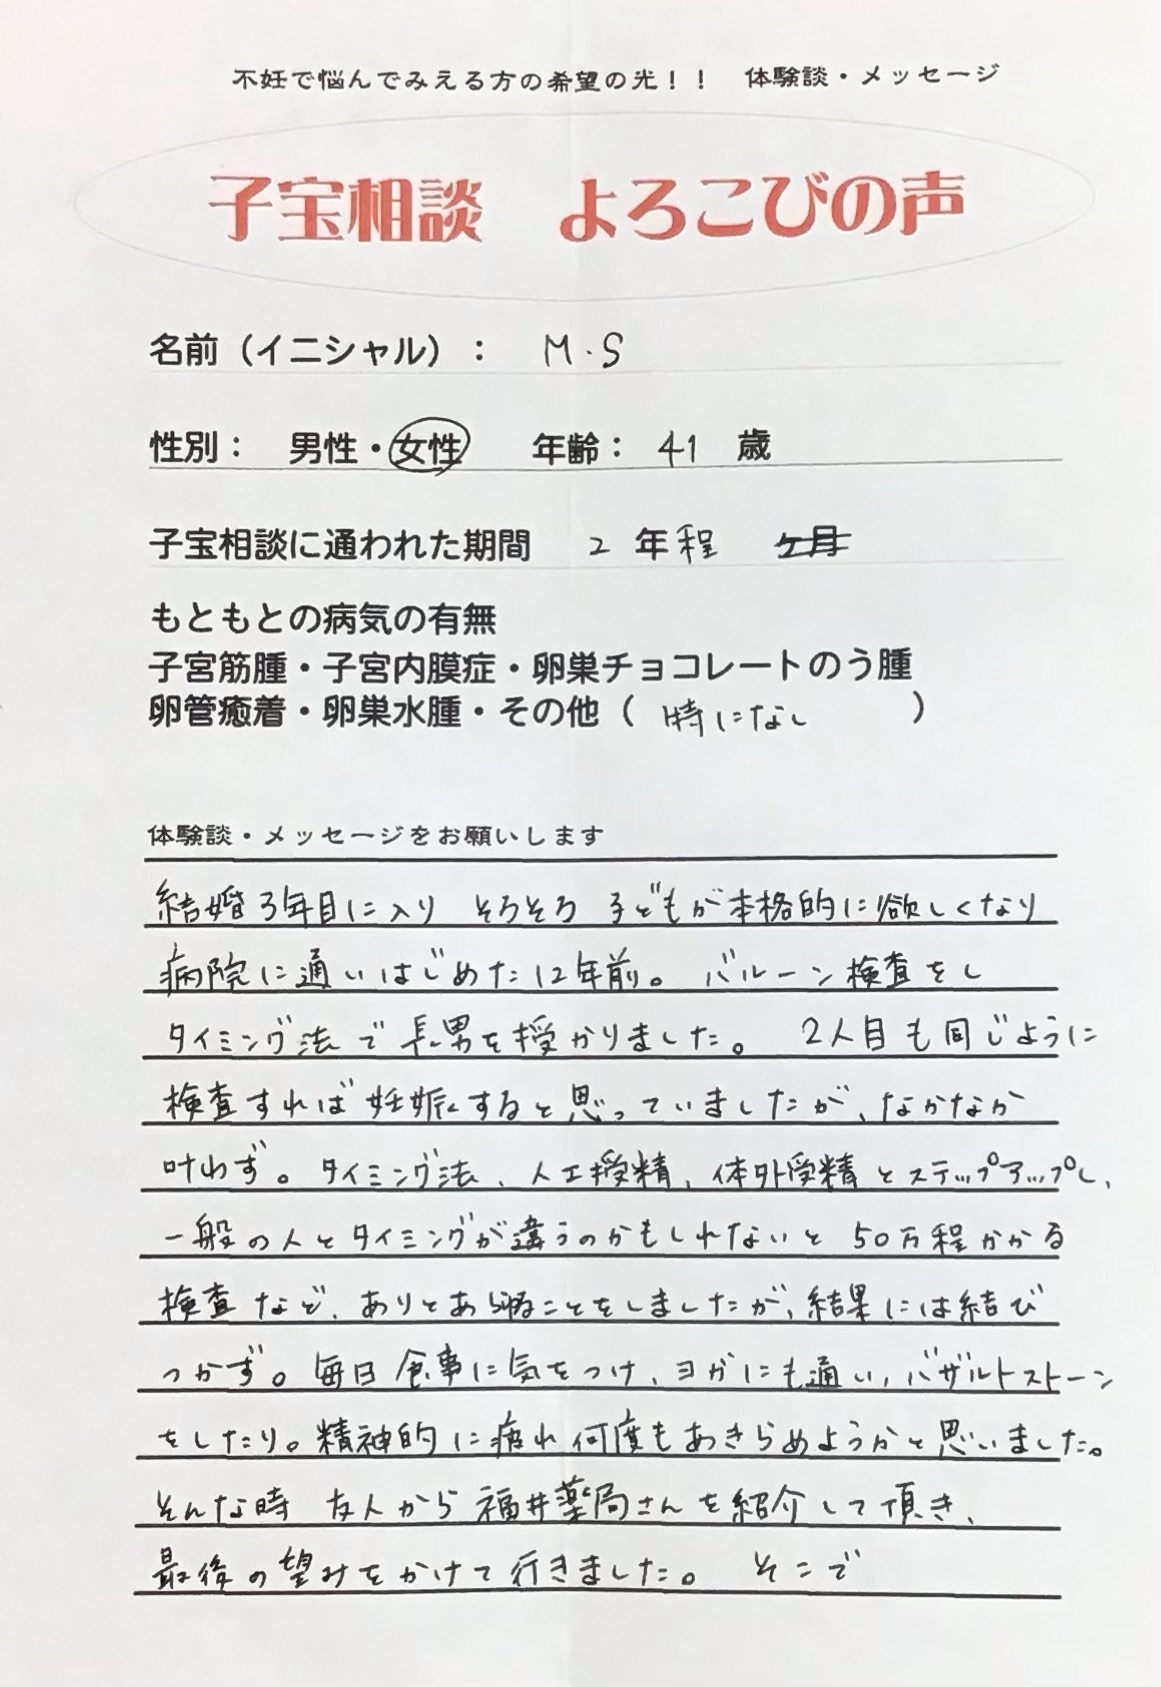 不妊で悩んでみえる方の希望の光！！　体験談・メッセージ
子宝相談　よろこびの声
名前（イニシャル）：　M・S
性別：　男性・女性　年齢：　41　歳
子宝相談に通われた期間　2　年程　ヶ月
もともとの病気の有無
子宮筋腫・子宮内膜症・卵巣チョコレートのう腫
卵管癒着・卵巣水腫・その他（　特になし　）
体験談・メッセージをお願いします
結婚3年目に入り　そろそろ　子どもが本格的に欲しくなり
病院に通いはじめた12年前。　バルーン検査をし
タイミング法で長男を授かりました。　2人目も同じように
検査すれば妊娠すると思っていましたが、なかなか
叶わず。タイミング法、人工授精、体外受精とステップアップし、
一般の人とタイミングが違うのかもしれないと50万程かかる
検査など、ありとあらゆることをしましたが、結果には結び
つかず。毎日食事に気をつけ、ヨガにも通い、バザルトストーン
をしたり。精神的に疲れ何度もあきらめようかと思いました。
そんな時　友人から福井薬局さんを紹介して頂き、
最後の望みをかけて行きました。　そこで